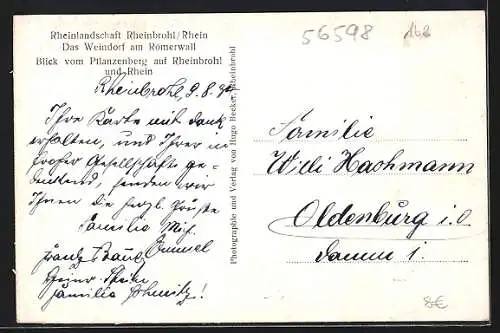 Rheinlandschaft Rheinbrohl/Rhein
Das Weindorf am Römerwall
Blick vom Pflanzenberg auf Rheinbrohl
und Rhein
Rheinbrohl, 9.8.
Ihre Karte mit Dank
erhalten, und Ihrer in
froher Gesellschaft ge-
denkend, senden wir
Ihnen die herzl. Grüße
Familie
Franz
Familie
Photographie und Verlag von Hugo Becker, Rheinbrohl
56598
Familie
Willi Hachmann
Oldenburg i.O
Damm 1.
8€